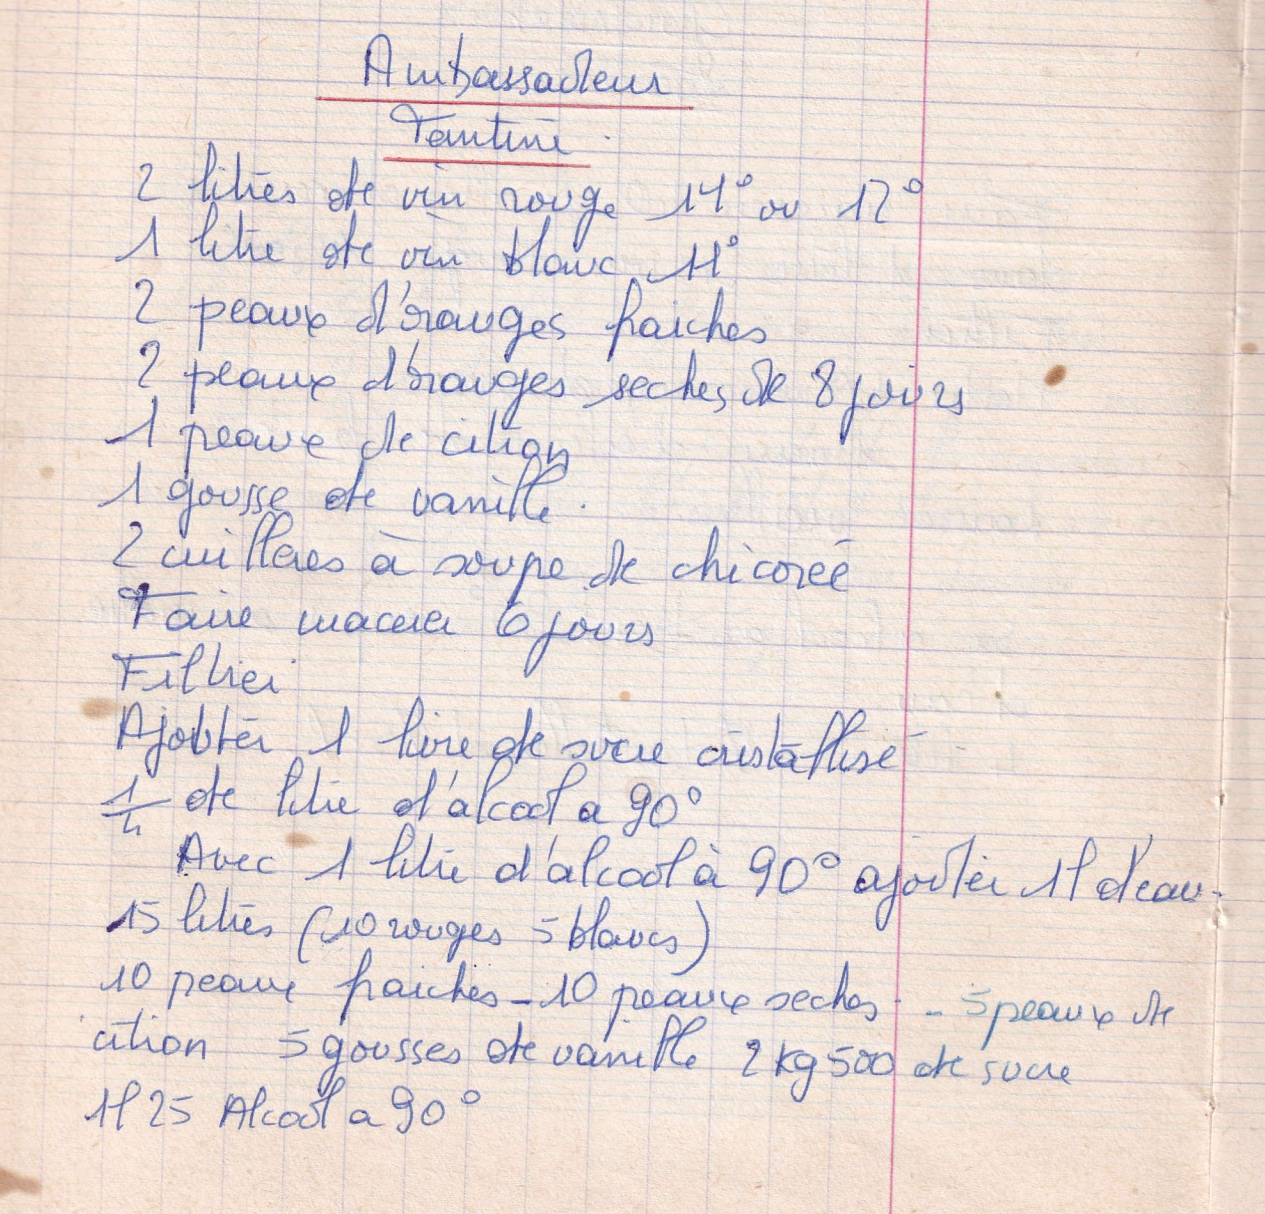 Ambassadeur
Tantine.
2 litres de vin rouge 14° ou 12°
1 litre de vin blanc 11°
2 peaux d'oranges fraiches
2 peaux d'oranges seches de 8 jours
1 peaux de citron
1 gousse de vanille.
2 cuilleres à soupe de chicoreé
Faire macerer 6 jours
Filtrer
Ajouter 1 livre de sucre cristallisé
1/4 de litre d'alcool a 90°
Avec 1 litre d'alcool à 90° ajouter 1l d'eau.
15 litres (10 rouges 5 blancs)
10 peaux fraiches - 10 peaux seches - 5 peaux de
citron 5 gousses de vanille 2 kg 500 de sucre
1l 25 Alcool a 90°